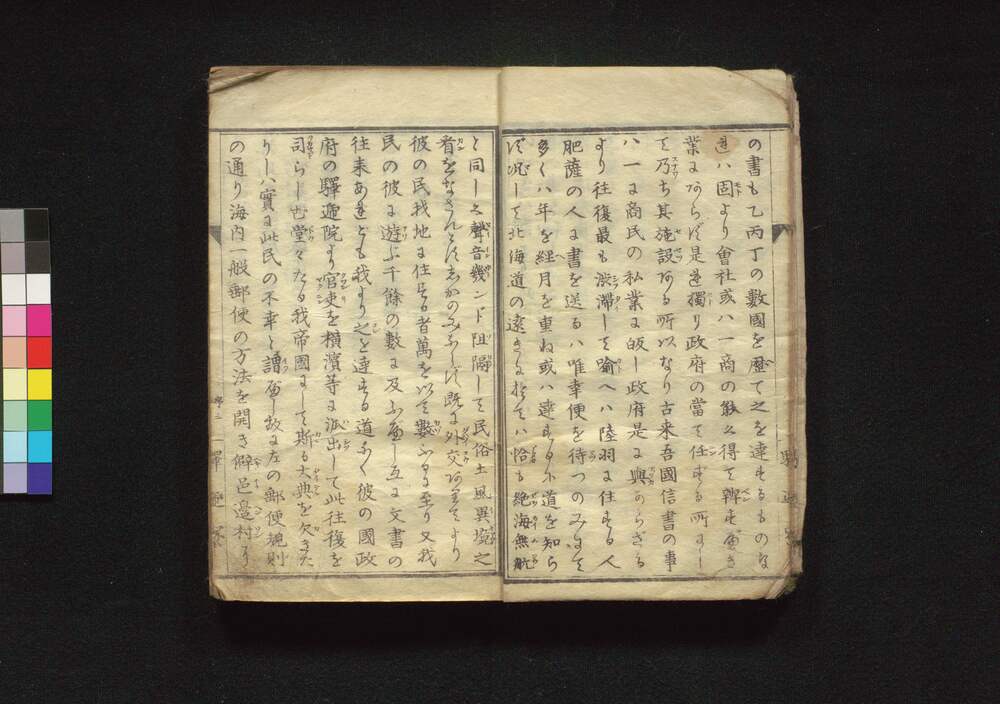 の書も乙丙丁の數國を歴て之を達するものな
れハ固より會社或ハ一商の能く之得て辨すへき
業にあらす是れ獨り政府の當て任する所にし
て乃ち其施設ある所以なり古来吾國信書の事
ハ一に商民の私業に皈し政府是に與からさる
より往復最も澁滞して喩へハ陸羽に住する人
肥薩の人に書を送るハ唯幸便を待つのみにて
多くハ年を経月を重ね或ハ達すると不達を知ら
す况して北海道の遠きに於てハ恰も絶海無航
と同しく聲音幾ンド阻隔して民俗土風異境之
看をなさんとすしかのみならす既に外交ありてより
彼の民我地に住する者萬を以て數ふるに至り又我
民の彼に遊ぶ千餘の數に及ふへし互に文書の
往来あれとも我より之を達する道なく彼の國政
府の驛逓院より官吏を横濱等に派出して此往復を
司らしむ堂々たる我帝國にして斯る大典を欠きた
りしハ實に此民の不幸と謂へし故に左の郵便規則
の通り海内一般郵便の方法を開き僻邑邊村に